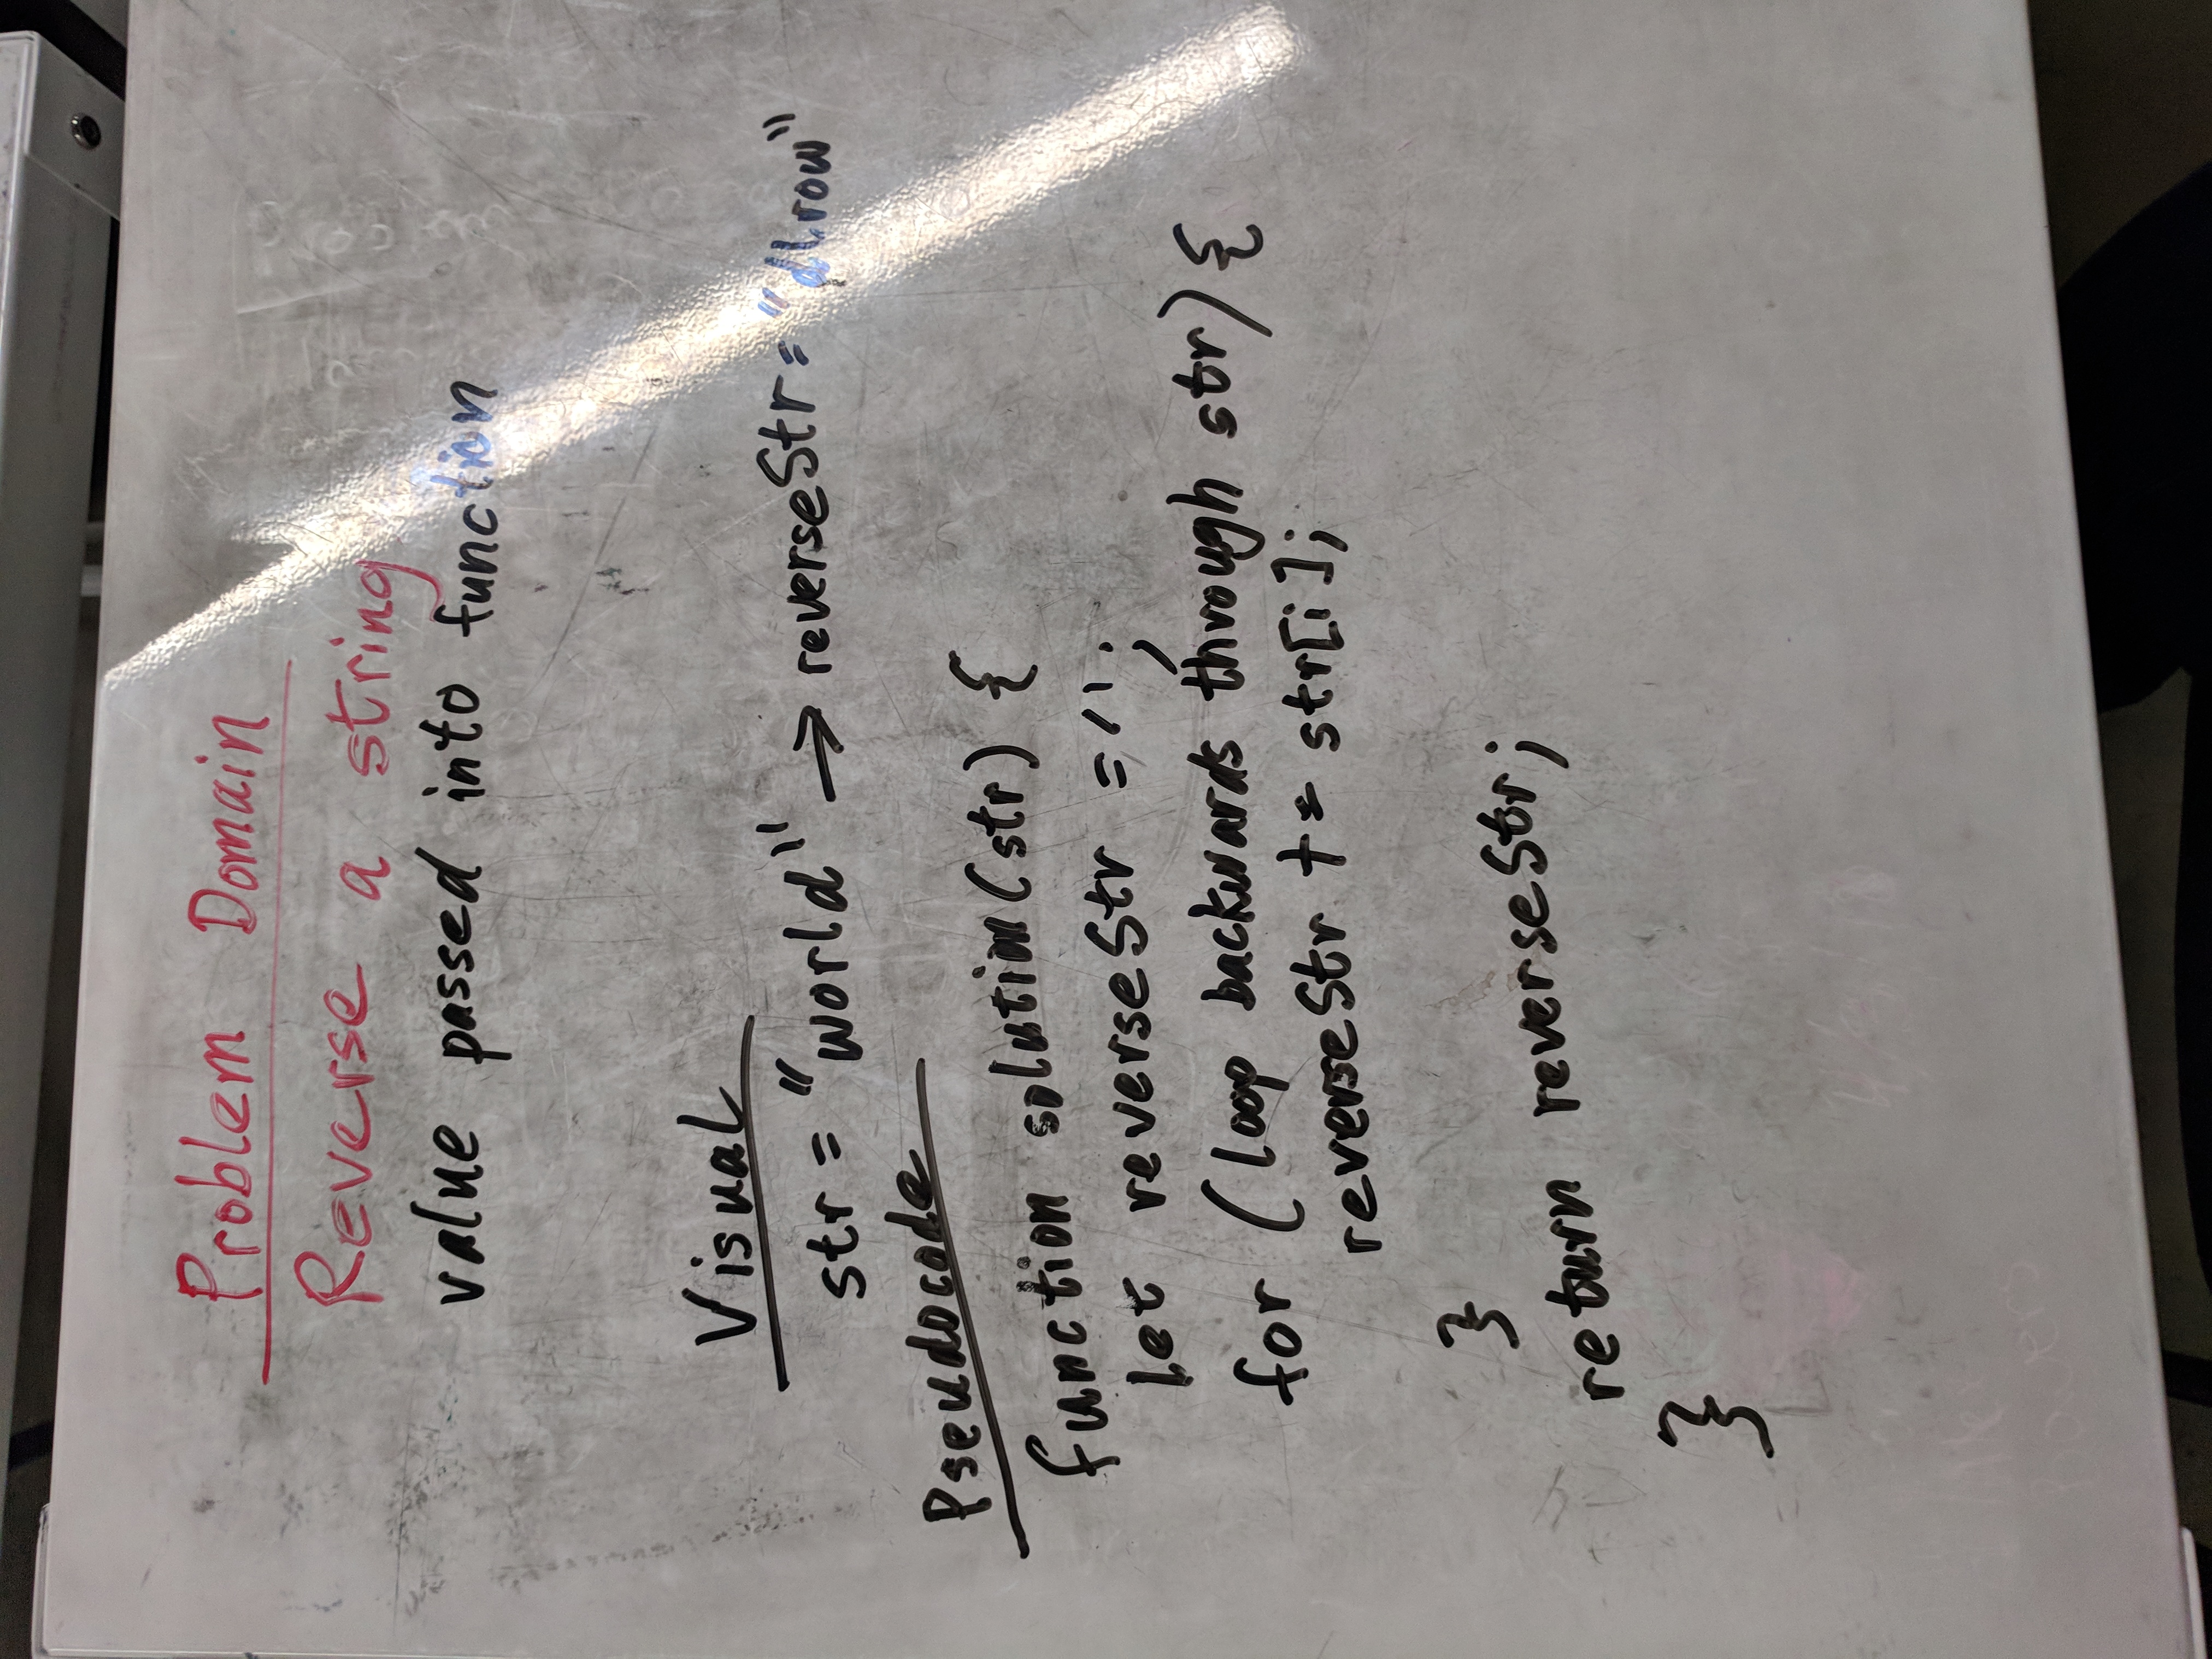 Problem Domain
Reverse a string
value passed into function
Visual
str = "world" → reverseStr = "dlrow"
Pseudocode
function solution(str) {
let reverseStr = '';
for (loop backwards through str) {
reverseStr += str[i];
}
return reverseStr;
}